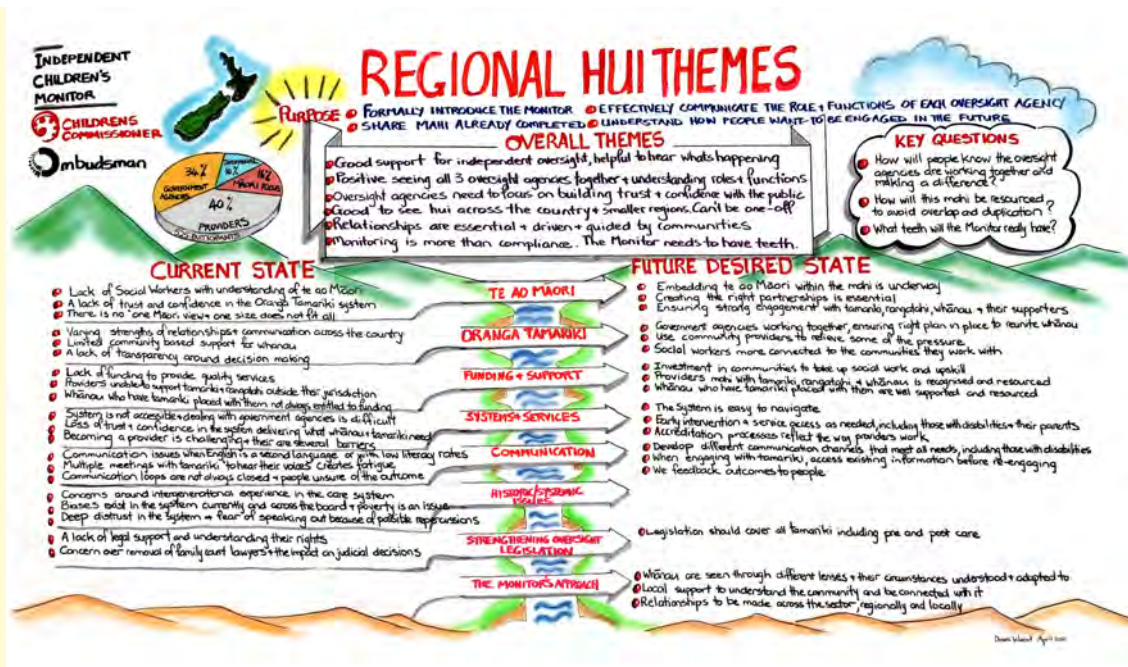 INDEPENDENT
CHILDREN'S
MONITOR
CHILDREN'S
COMMISSIONER
Ombudsman
REGIONAL HUI THEMES
PURPOSE
FORMALLY INTRODUCE THE MONITOR
EFFECTIVELY COMMUNICATE THE ROLE + FUNCTIONS OF EACH OVERSIGHT AGENCY
SHARE MAHI ALREADY COMPLETED
UNDERSTAND HOW PEOPLE WANT TO BE ENGAGED IN THE FUTURE
34%
GOVERNMENT
AGENCIES
10%
16%
MĀORI FOCUS
40%
PROVIDERS
PARTICIPANTS
OVERALL THEMES
Good support for independent oversight, helpful to hear whats happening
Positive seeing all 3 oversight agencies together + understanding roles + functions
Oversight agencies need to focus on building trust + confidence with the public
Good to see hui across the country + smaller regions. Can't be one-off
Relationships are essential + driven + guided by communities
Monitoring is more than compliance. The Monitor needs to have teeth.
KEY QUESTIONS
How will people know the oversight
agencies are working together and
making a difference?
How will this mahi be resourced
to avoid overlap and duplication?
What teeth will the Monitor really have?
CURRENT STATE
Lack of Social Workers with understanding of te ao Māori
A lack of trust and confidence in the Oranga Tamariki system
There is no "one Māori view + one size does not fit all
Varying strengths of relationships + communication across the country
Limited community based support for whānau
A lack of transparency around decision making
Lack of funding to provide quality services
Providers unable to support tamariki + rangatahi outside their jurisdiction
Whānau who have tamariki placed with them not always entitled to funding
System is not accessible + dealing with government agencies is difficult
Loss of trust + confidence in the system delivering what whānau + tamariki need
Becoming a provider is challenging + their are several barriers
Communication issues when English is a second language or with low literacy rates
Multiple meetings with tamariki to hear their voices creates fatigue
Communication loops are not always closed + people unsure of the outcome
Concerns around intergenerational experience in the care system
Biases exist in the system currently and across the board + poverty is an issue
Deep distrust in the system + fear of speaking out because of possible repercussions
A lack of legal support and understanding their rights
Concern over removal of family court lawyers + the impact on judicial decisions
TE AO MĀORI
ORANGA TAMARIKI
FUNDING + SUPPORT
SYSTEMS + SERVICES
COMMUNICATION
HISTORIC/SYSTEMIC
ISSUES
STRENGTHENING OVERSIGHT
LEGISLATION
THE MONITOR'S APPROACH
FUTURE DESIRED STATE
Embedding te ao Māori within the mahi is underway
Creating the right partnerships is essential
Ensuring strong engagement with tamariki, rangatahi, whānau, + their supporters
Government agencies working together, ensuring right plan in place to reunite whānau
Use community providers to relieve some of the pressure
Social workers more connected to the communities they work with
Investment in communities to take up social work and upskill
Providers mahi with tamariki, rangatahi + whānau is recognised and resourced
Whānau who have tamariki placed with them are well supported and resourced
The System is easy to navigate
Early intervention + service access as needed, including those with disabilities + their parents
Accreditation processes reflect the way providers work
Develop different communication channels that meet all needs, including those with disabilities
When engaging with tamariki, access existing information before re-engaging
We feedback outcomes to people
Legislation should cover all tamariki including pre and post care
Whānau are seen through different lenses + their circumstances understood + adapted to
Local support to understand the community and be connected with it
Relationships to be made across the sector, regionally and locally
April